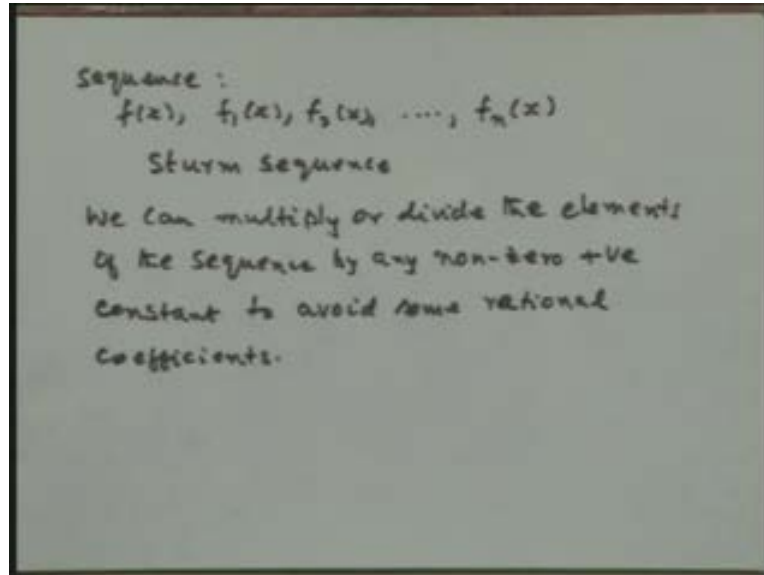 Sequence :
f(x), f₁(x), f₂(x), ...., fₙ(x)
Sturm Sequence
We can multiply or divide the elements
of the Sequence by any non-zero +ve
constant to avoid some rational
coefficients.